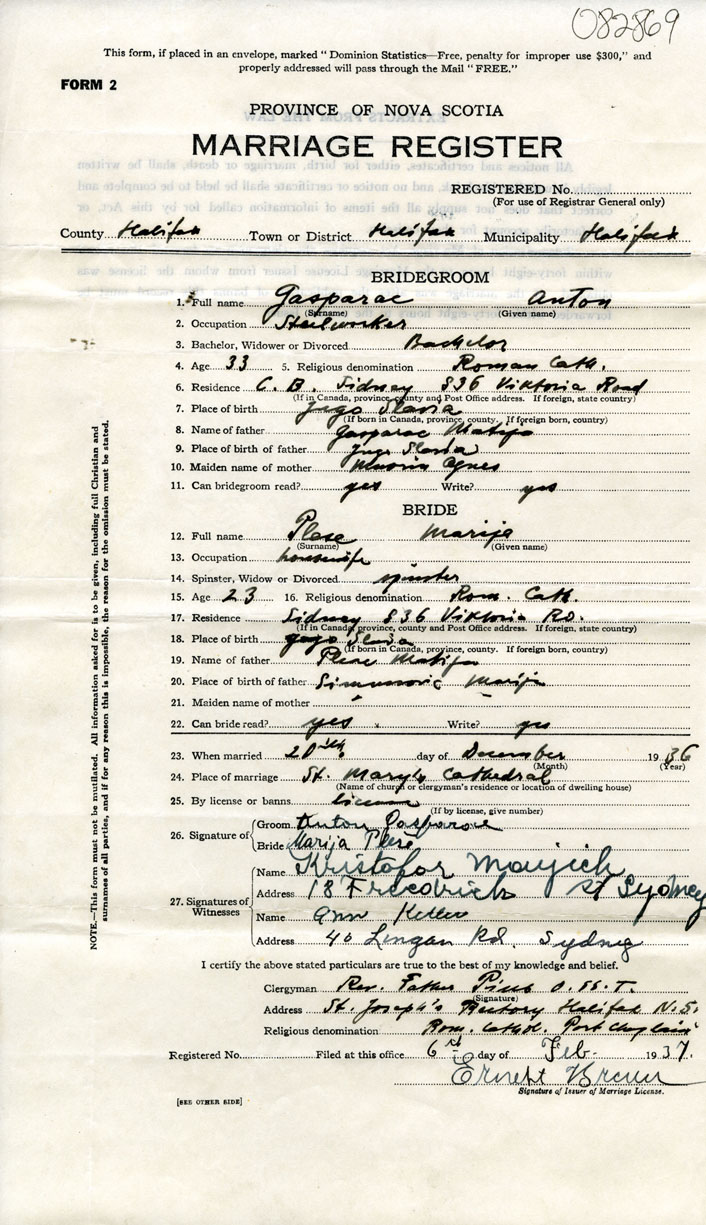 082869
This form, if placed in an envelope, marked "Dominion Statistics—Free, penalty for improper use $300," and
properly addressed will pass through the Mail "FREE."
FORM 2
PROVINCE OF NOVA SCOTIA
MARRIAGE REGISTER
REGISTERED No.
(For use of Registrar General only)
County Halifax Town or District Halifax Municipality Halifax
BRIDEGROOM
1. Full name Gasparac Anton
(Surname) (Given name)
2. Occupation Steelworker
3. Bachelor, Widower or Divorced Bachelor
4. Age 33 5. Religious denomination Roman Cath.
6. Residence C. B. Sidney 836 Viktoria Road
(If in Canada, province, county and Post Office address. If foreign, state country)
7. Place of birth Jugo Slavia
(If born in Canada, province, county. If foreign born, country)
8. Name of father Gasparac Matija
9. Place of birth of father Jugo Slavia
10. Maiden name of mother Agnes
11. Can bridegroom read? yes Write? yes
BRIDE
12. Full name Plese Marija
(Surname) (Given name)
13. Occupation housewife
14. Spinster, Widow or Divorced spinster
15. Age 23 16. Religious denomination Rom. Cath.
17. Residence Sidney 836 Viktoria RD.
(If in Canada, province, county and Post Office address. If foreign, state country)
18. Place of birth Jugo Slavia
(If born in Canada, province, county. If foreign born, country)
19. Name of father Plese Matija
20. Place of birth of father Simunovic Marija
21. Maiden name of mother
22. Can bride read? yes Write? yes
23. When married 20th day of December 1936
(Month) (Year)
24. Place of marriage St. Mary's Cathedral
(Name of church or clergyman's residence or location of dwelling house)
25. By license or banns license
(If by license, give number)
26. Signature of Groom Anton Gasparac
Bride Marija Plese
27. Signatures of Witnesses Name Kristofor
Address 18 Fredrick St Sydney
Name Ann
Address 40 Lingan Rd, Sydney
I certify the above stated particulars are true to the best of my knowledge and belief.
Clergyman Rev. Father Pius O. SS. T.
(Signature)
Address St. Joseph's Rectory Halifax N.S.
Religious denomination Rom. Cathol. Port Chaplain
Registered No. Filed at this office 6th day of Feb. 1937.
Ernest
Signature of Issuer of Marriage License.
[SEE OTHER SIDE]
NOTE.—This form must not be mutilated. All information asked for is to be given, including full Christian and
surnames of all parties, and if for any reason this is impossible, the reason for the omission must be stated.